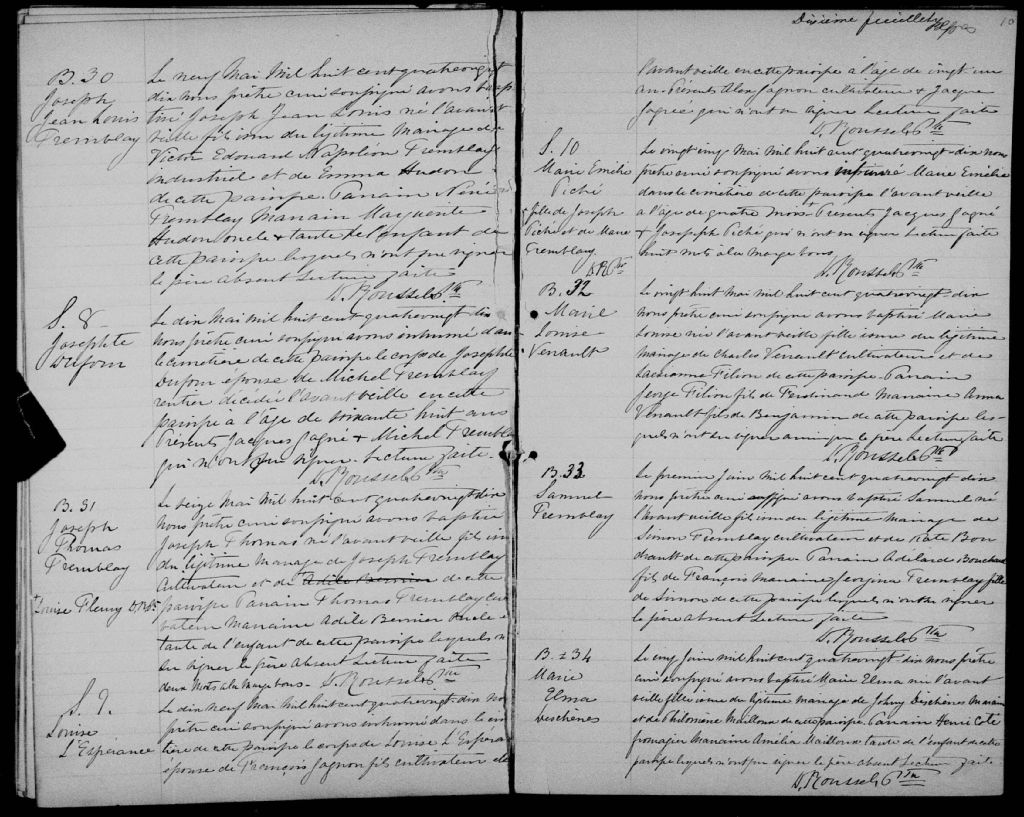 B. 30
Joseph
Jean Louis
Tremblay
Le neuf Mai Mil huit cent quatrevingt
dix nous prêtre curé soussigné avons bap
tisé Joseph Jean Louis né l'avant
veille fils issu du légitime Mariage de
Victor Edouard Napoléon Tremblay
industriel et de Emma Hudon
de cette paroisse. Parrain
Tremblay Marraine Marguerite
Hudon oncle & tante de l'enfant de
cette paroisse lesquels n'ont pu signer
le père absent Lecture faite
D. Roussel Ptre
S. 8
Josephte
Dufour
Le dix Mai Mil huit cent quatrevingt dix
nous prêtre curé soussigné avons inhumé dans
le cimetière de cette paroisse le corps de Josephte
Dufour épouse de Michel Tremblay
rentier décédée l'avant veille en cette
paroisse à l'âge de soixante huit ans
Présents Jacques Gagné & Michel Tremblay
qui n'ont pu signer. Lecture faite.
D. Roussel Ptre
B. 31
Joseph
Thomas
Tremblay
+ Louise Fleury D.R. Ptre
Le seize Mai Mil huit cent quatrevingt dix
nous prêtre curé soussigné avons baptisé
Joseph Thomas né l'avant veille fils issu
du légitime Mariage de Joseph Tremblay
Cultivateur et de Adèle Bernier de cette
paroisse Parrain Thomas Tremblay culti
vateur Marraine Adèle Bernier Oncle &
tante de l'enfant de cette paroisse lesquels n'ont
su signer le père absent Lecture faite
deux Mots à la Marge bons. D. Roussel Ptre
S. 9.
Louise
L'Espérance
Le dix neuf Mai Mil huit cent quatrevingt dix nous
prêtre curé soussigné avons inhumé dans le cime
tière de cette paroisse le corps de Louise L'Espérance
épouse de François Gagnon fils cultivateur décédée
Dixième feuillet
10
l'avant veille en cette paroisse à l'âge de vingt-un
an Présents Alex Gagnon cultivateur & Jacques
Gagné qui n'ont su signer Lecture faite
D. Roussel Ptre
S. 10
Marie Emélie
Piché
+ fille de Joseph
Piché et de Marie
Tremblay
D.R. Ptre
Le vingt cinq Mai Mil huit cent quatrevingt-dix nous
prêtre curé soussigné avons inhumé Marie Emélie
dans le cimetière de cette paroisse l'avant veille
à l'âge de quatre mois + Présents Jacques Gagné
& Joseph Piché qui n'ont su signer Lecture faite
huit mots à la marge bons
D. Roussel Ptre
B. 32
Marie
Louise
Venault
Le vingt huit Mai mil huit cent quatrevingt-dix
nous prêtre curé soussigné avons baptisé Marie
Louise née l'avant veille fille issue du légitime
mariage de Charles Venault cultivateur et de
Filion de cette paroisse. Parrain
George Filion fils de Ferdinand Marraine Anna
Venault fille de Benjamin de cette paroisse les
quels n'ont su signer ainsi que le père Lecture faite
D. Roussel Ptre
B. 33
Samuel
Tremblay
Le premier Juin Mil huit cent quatrevingt dix
nous prêtre curé soussigné avons baptisé Samuel né
l'avant veille fils issu du légitime mariage de
Simon Tremblay cultivateur et de Kate Bou
chard de cette paroisse Parrain Adélard Bouchard
fils de François Marraine Georgina Tremblay fille
de Simon de cette paroisse lesquels n'ont su signer
le père absent Lecture faite
D. Roussel Ptre
B. 34
Marie
Elma
Deschènes
Le cinq Juin mil huit cent quatrevingt-dix nous prêtre
curé soussigné avons baptisé Marie Elma née l'avant
veille fille issue du légitime mariage de Johny Deschènes
et de Philomène Mailloux de cette paroisse Parrain Henri Coté
fromagier Marraine Amélia Mailloux tante de l'enfant de cette
paroisse lesquels n'ont pu signer le père absent Lecture faite
D. Roussel Ptre